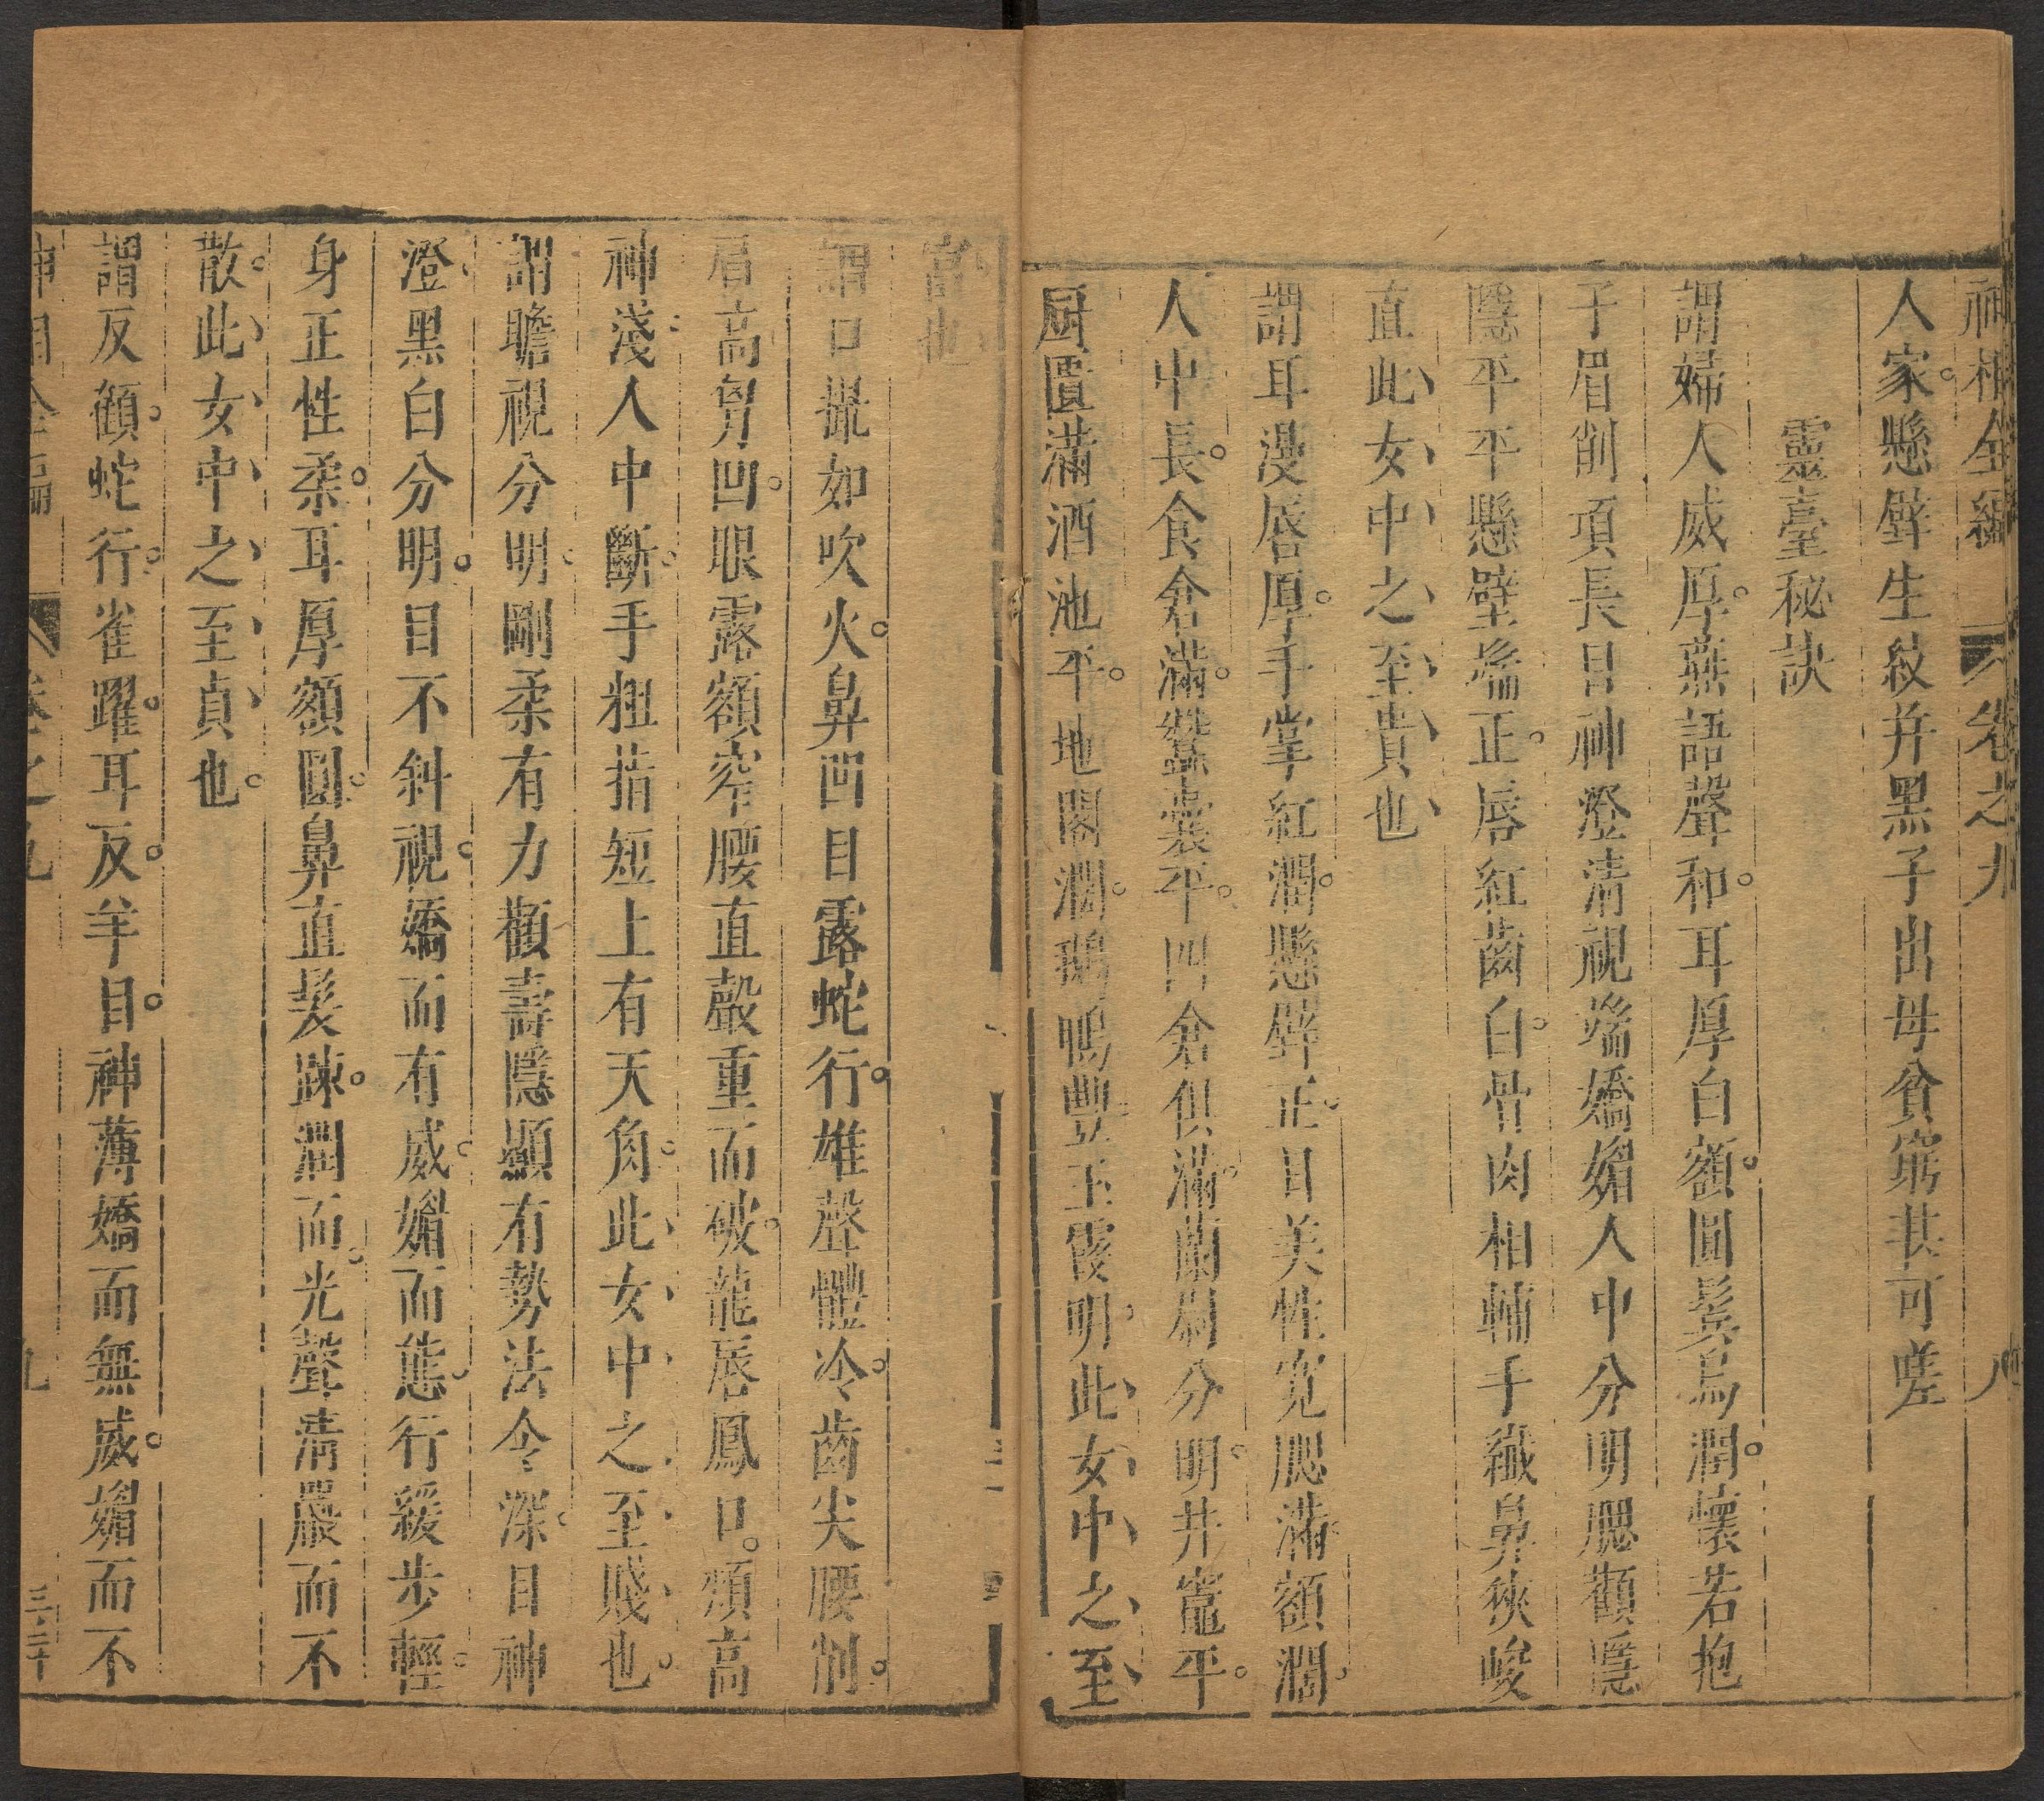 神相全編 卷之九 八
人家。懸壁生紋并黑子出母貧窮其可嗟
靈臺秘訣
謂婦人威厚。無語聲和。耳厚白。額圓鬂烏潤。懷若抱
子眉削項長目神澄清視端嬌媚人中分明腮顴隱
隱平平懸壁端正。唇紅齒白。骨肉相輔手纖鼻狹峻
直此女中之至貴也
謂耳漫唇厚。手掌紅潤。懸壁正。目美性寬腮滿額濶。
人中長。食倉滿。蠶囊平。四倉俱滿。蘭尉分明。井竈平。
厨匱滿酒池平。地閣濶。鵝鴨豐玉霞明。此女中之至
富也
謂口撮如吹火。鼻凹目露蛇行。雄聲體冷。齒尖腰削。
眉高胷凹。眼露額窄腰直聲重而破。龍唇鳳口。頰高
神淺。人中斷。手粗指短上有天角。此女中之至賤也。
謂瞻視分明。剛柔有力顴壽隱顯有勢法令深。目神
澄。黑白分明。目不斜視。嬌而有威。媚而態。行緩步輕。
身正性柔。耳厚額圓。鼻直髮疎。潤而。光聲清嚴而不
散。此女中之至貞也。
謂反顧。蛇行。雀躍。耳反。羊目。神薄嬌而無威。媚而不
神相全編 卷之九 九 三二十